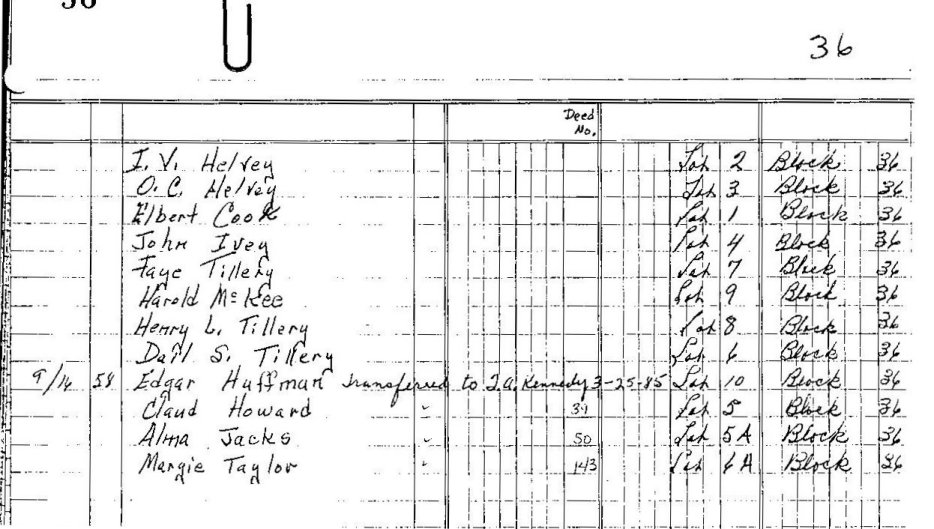 36
36
Deed
No.
I. V. Helvey Lot 2 Block 36
O. C. Helvey Lot 3 Block 36
Elbert Cook Lot 1 Block 36
John Ivey Lot 4 Block 36
Faye Tillery Lot 7 Block 36
Harold McKee Lot 9 Block 36
Henry L. Tillery Lot 8 Block 36
S. Tillery Lot 6 Block 36
9/16 58 Edgar Huffman transferred to J.A. Kennedy 3-25-85 Lot 10 Block 36
Claud Howard 39 Lot 5 Block 36
Alma Jacks 50 Lot 5A Block 36
Margie Taylor 143 Lot 6A Block 36